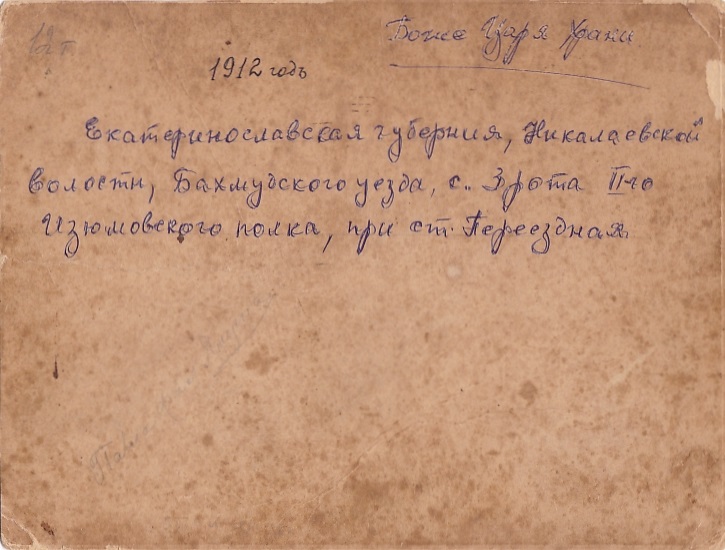 12 г
Боже Царя Храни
1912 годъ
Екатеринославская губерния, Никалаевской
волости, Бахмудского уезда, с. 3 рота II-го
Изюмовского полка, при ст. Переездная